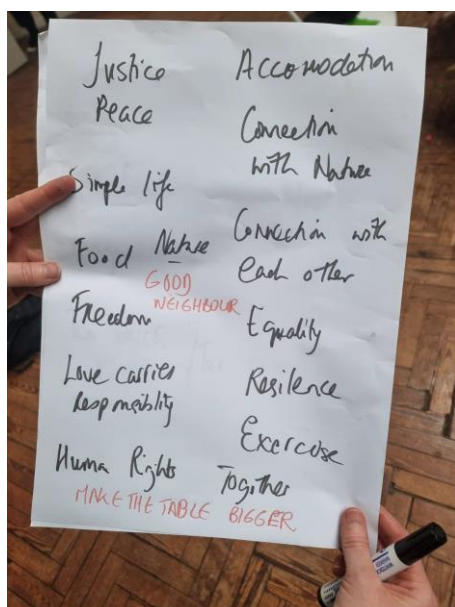 Justice
Peace
Simple life
Food Nature
GOOD
NEIGHBOUR
Freedom
Love carries
Responsiblity
Human Rights
MAKE THE TABLE BIGGER
Accomodation
Connection
with Nature
Connection with
each other
Equality
Resilence
Exercise
Together